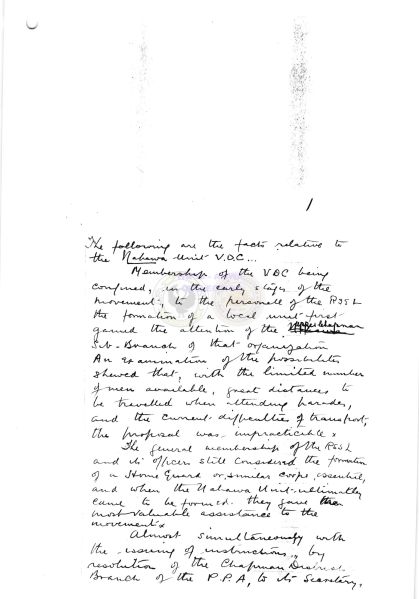 1
The following are the facts relative to
the Nahawa Unit V.D.C...
Membership of the VDC being
confined, in the early stages of the
movement, to the personell of the RSSL
the formation of local unit first
gained the attention of the Upper Chapman
Sub-Branch of that organization
An examination of the possibilities
shewed that, with the limited number
of men available, great distances to
be travelled when attending parades,
and the current difficulties of transport,
the proposal was impracticible x
The general membership of the RSSL
and its officers still considered the formation
of a Home Guard or similar corps essential,
and when the Nahawa Unit ultimately
came to be formed they gave
most valuable assistance to the
movement x
Almost simultaneously with
the issuing of instructions, by
resolution of the Chapman District
Branch of the P.P.A, to its Secretary,